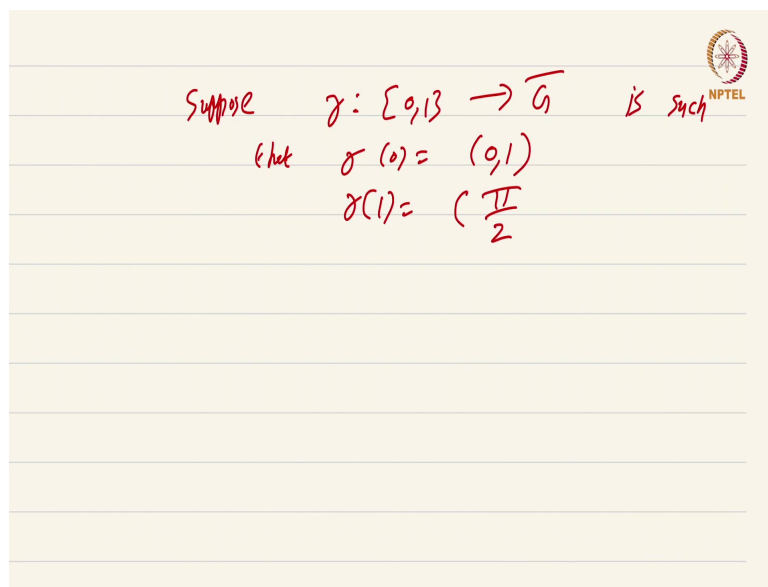 NPTEL
Suppose γ: [0,1] → G̅ is such
that γ(0) = (0,1)
γ(1) = (π/2